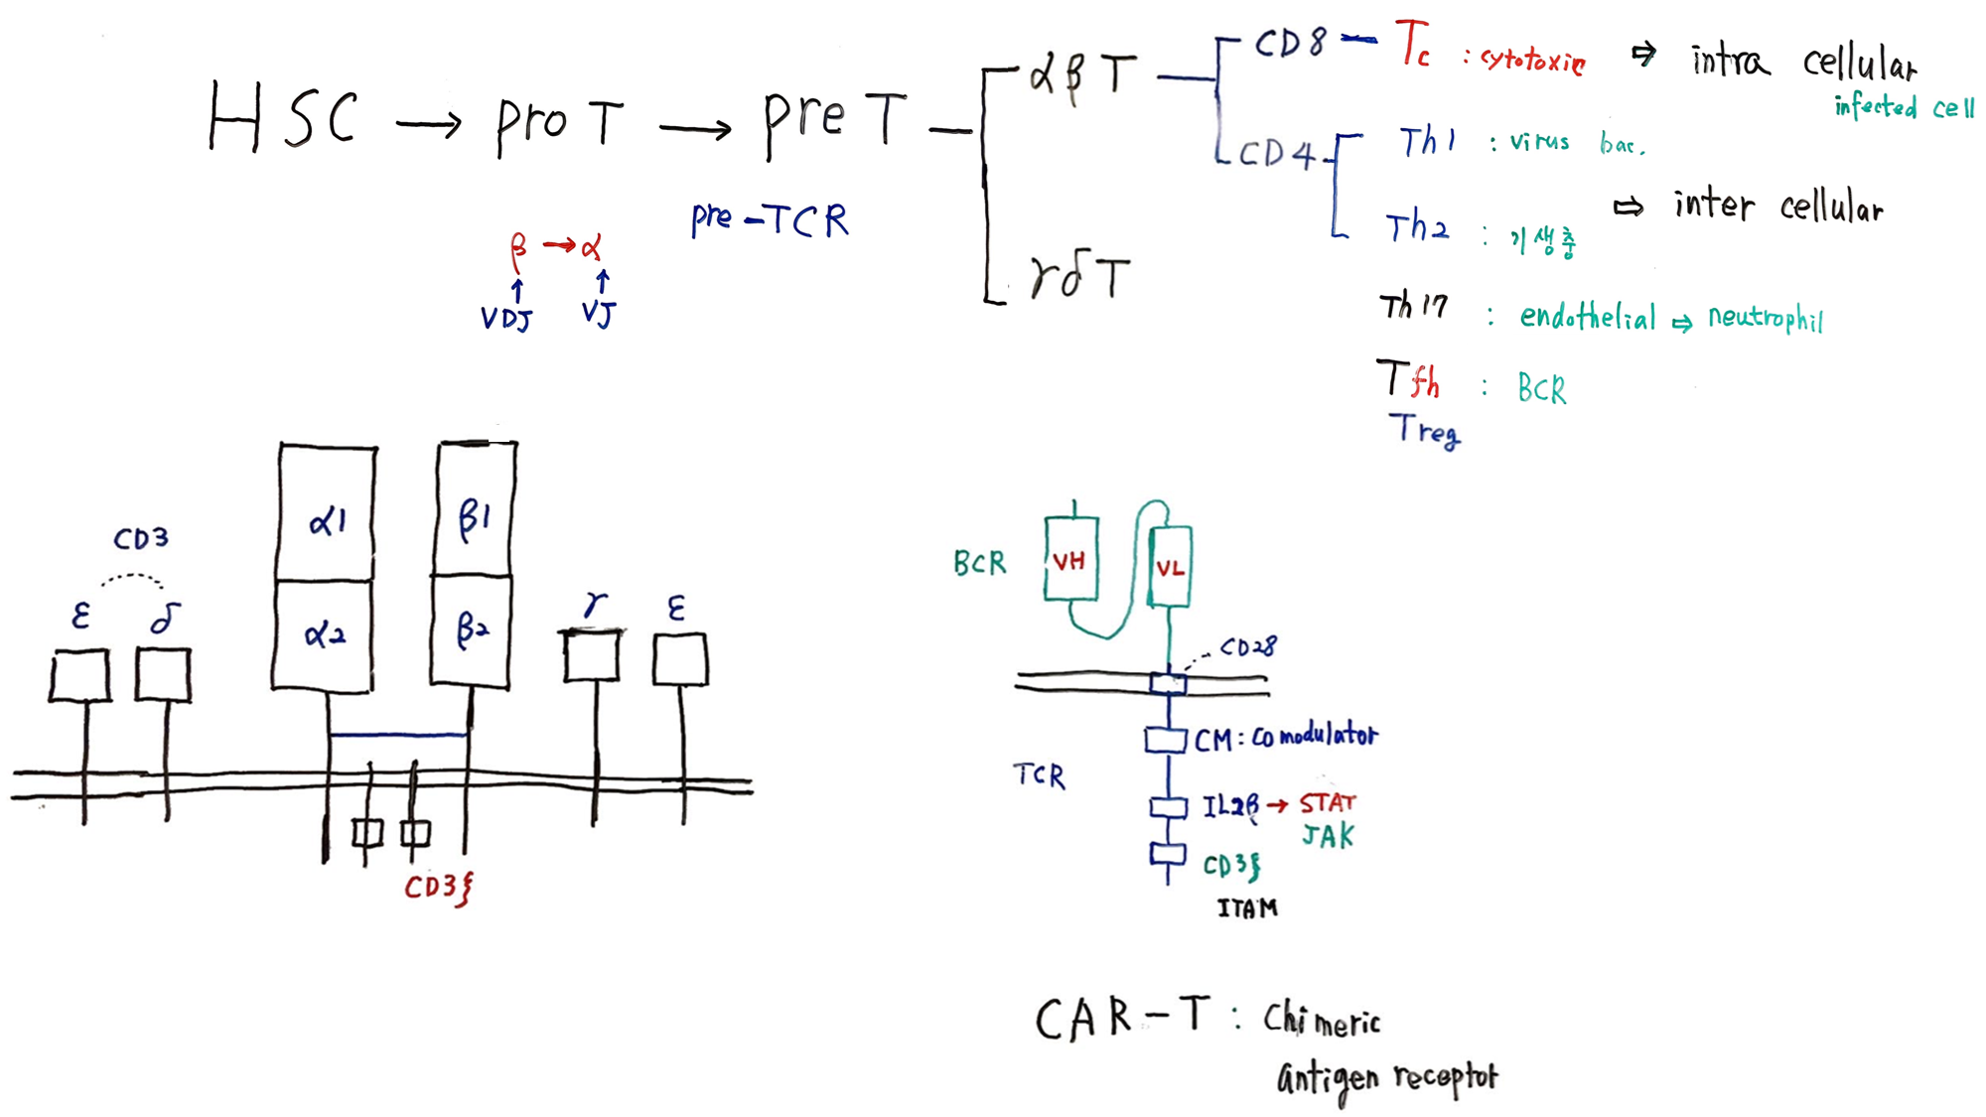 HSC → pro T → pre T
αβ T
γδ T
CD8 – Tc : cytotoxic ⇨ intra cellular
infected cell
CD4
Th1 : virus bac.
Th2 : 기생충
⇨ inter cellular
Th17 : endothelial ⇨ neutrophil
Tfh : BCR
Treg
pre-TCR
β → α
↑ ↑
VDJ VJ
CD3
ε δ
α1 β1
α2 β2
γ ε
CD3ξ
BCR
VH VL
CD28
CM : Comodulator
TCR
IL2β → STAT
JAK
CD3ξ
ITAM
CAR-T : Chimeric
antigen receptor